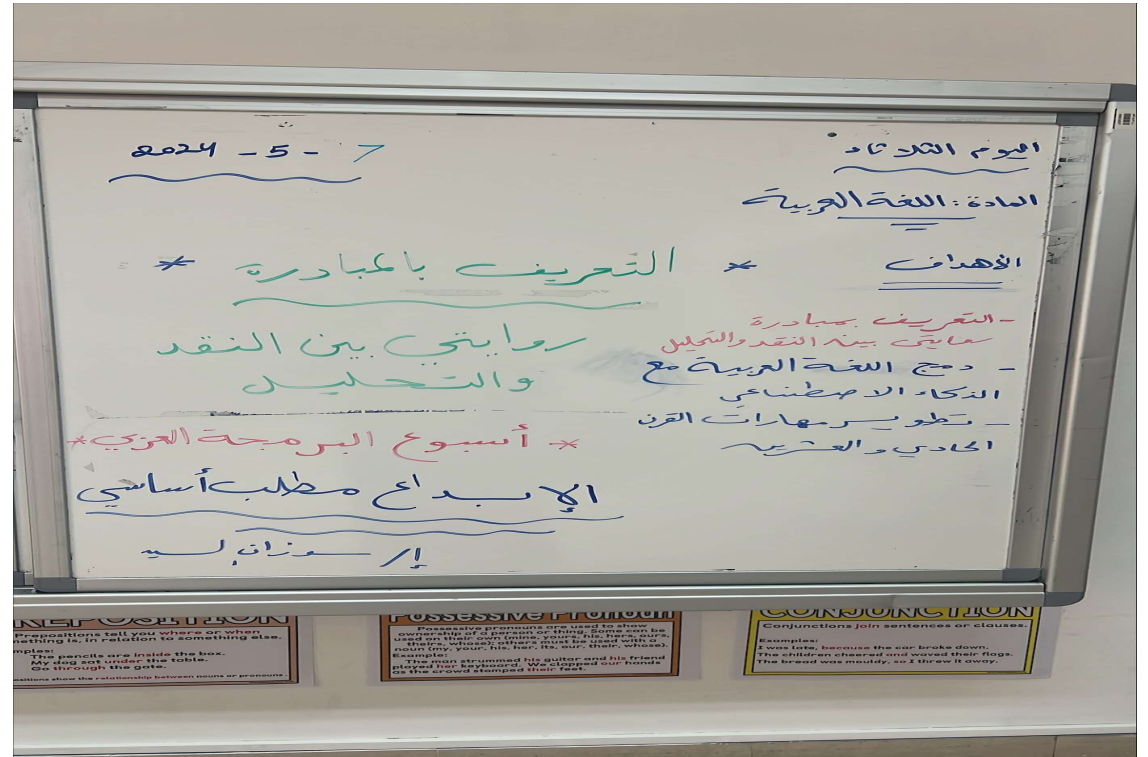 اليوم الثلاثاء
7 - 5 - 2024
المادة : اللغة العربية
الأهداف
* التعريف بالمبادرة *
روايتي بين النقد
والتحليل
- التعريف بمبادرة
روايتي بين النقد والتحليل
- دمج اللغة العربية مع
الذكاء الاصطناعي
- تطوير مهارات القرن
الحادي والعشرين
* أسبوع البرمجة العربي *
الإبداع مطلب أساسي
إ/ سوزان السيد
PREPOSITION
Prepositions tell you where or when
something is, in relation to something else.
Examples:
The pencils are inside the box.
My dog sat under the table.
Go through the gate.
Prepositions show the relationship between nouns or pronouns.
Possessive Pronoun
Possessive pronouns are used to show
ownership of a person or thing. Some can be
used on their own (mine, yours, his, hers, ours,
theirs, whose); others must be used with a
noun (my, your, his, her, its, our, their, whose).
Example:
The man strummed his guitar and his friend
played her keyboard. We clapped our hands
as the crowd stamped their feet.
CONJUNCTION
Conjunctions join sentences or clauses.
Examples:
I was late, because the car broke down.
The children cheered and waved their flags.
The bread was mouldy, so I threw it away.